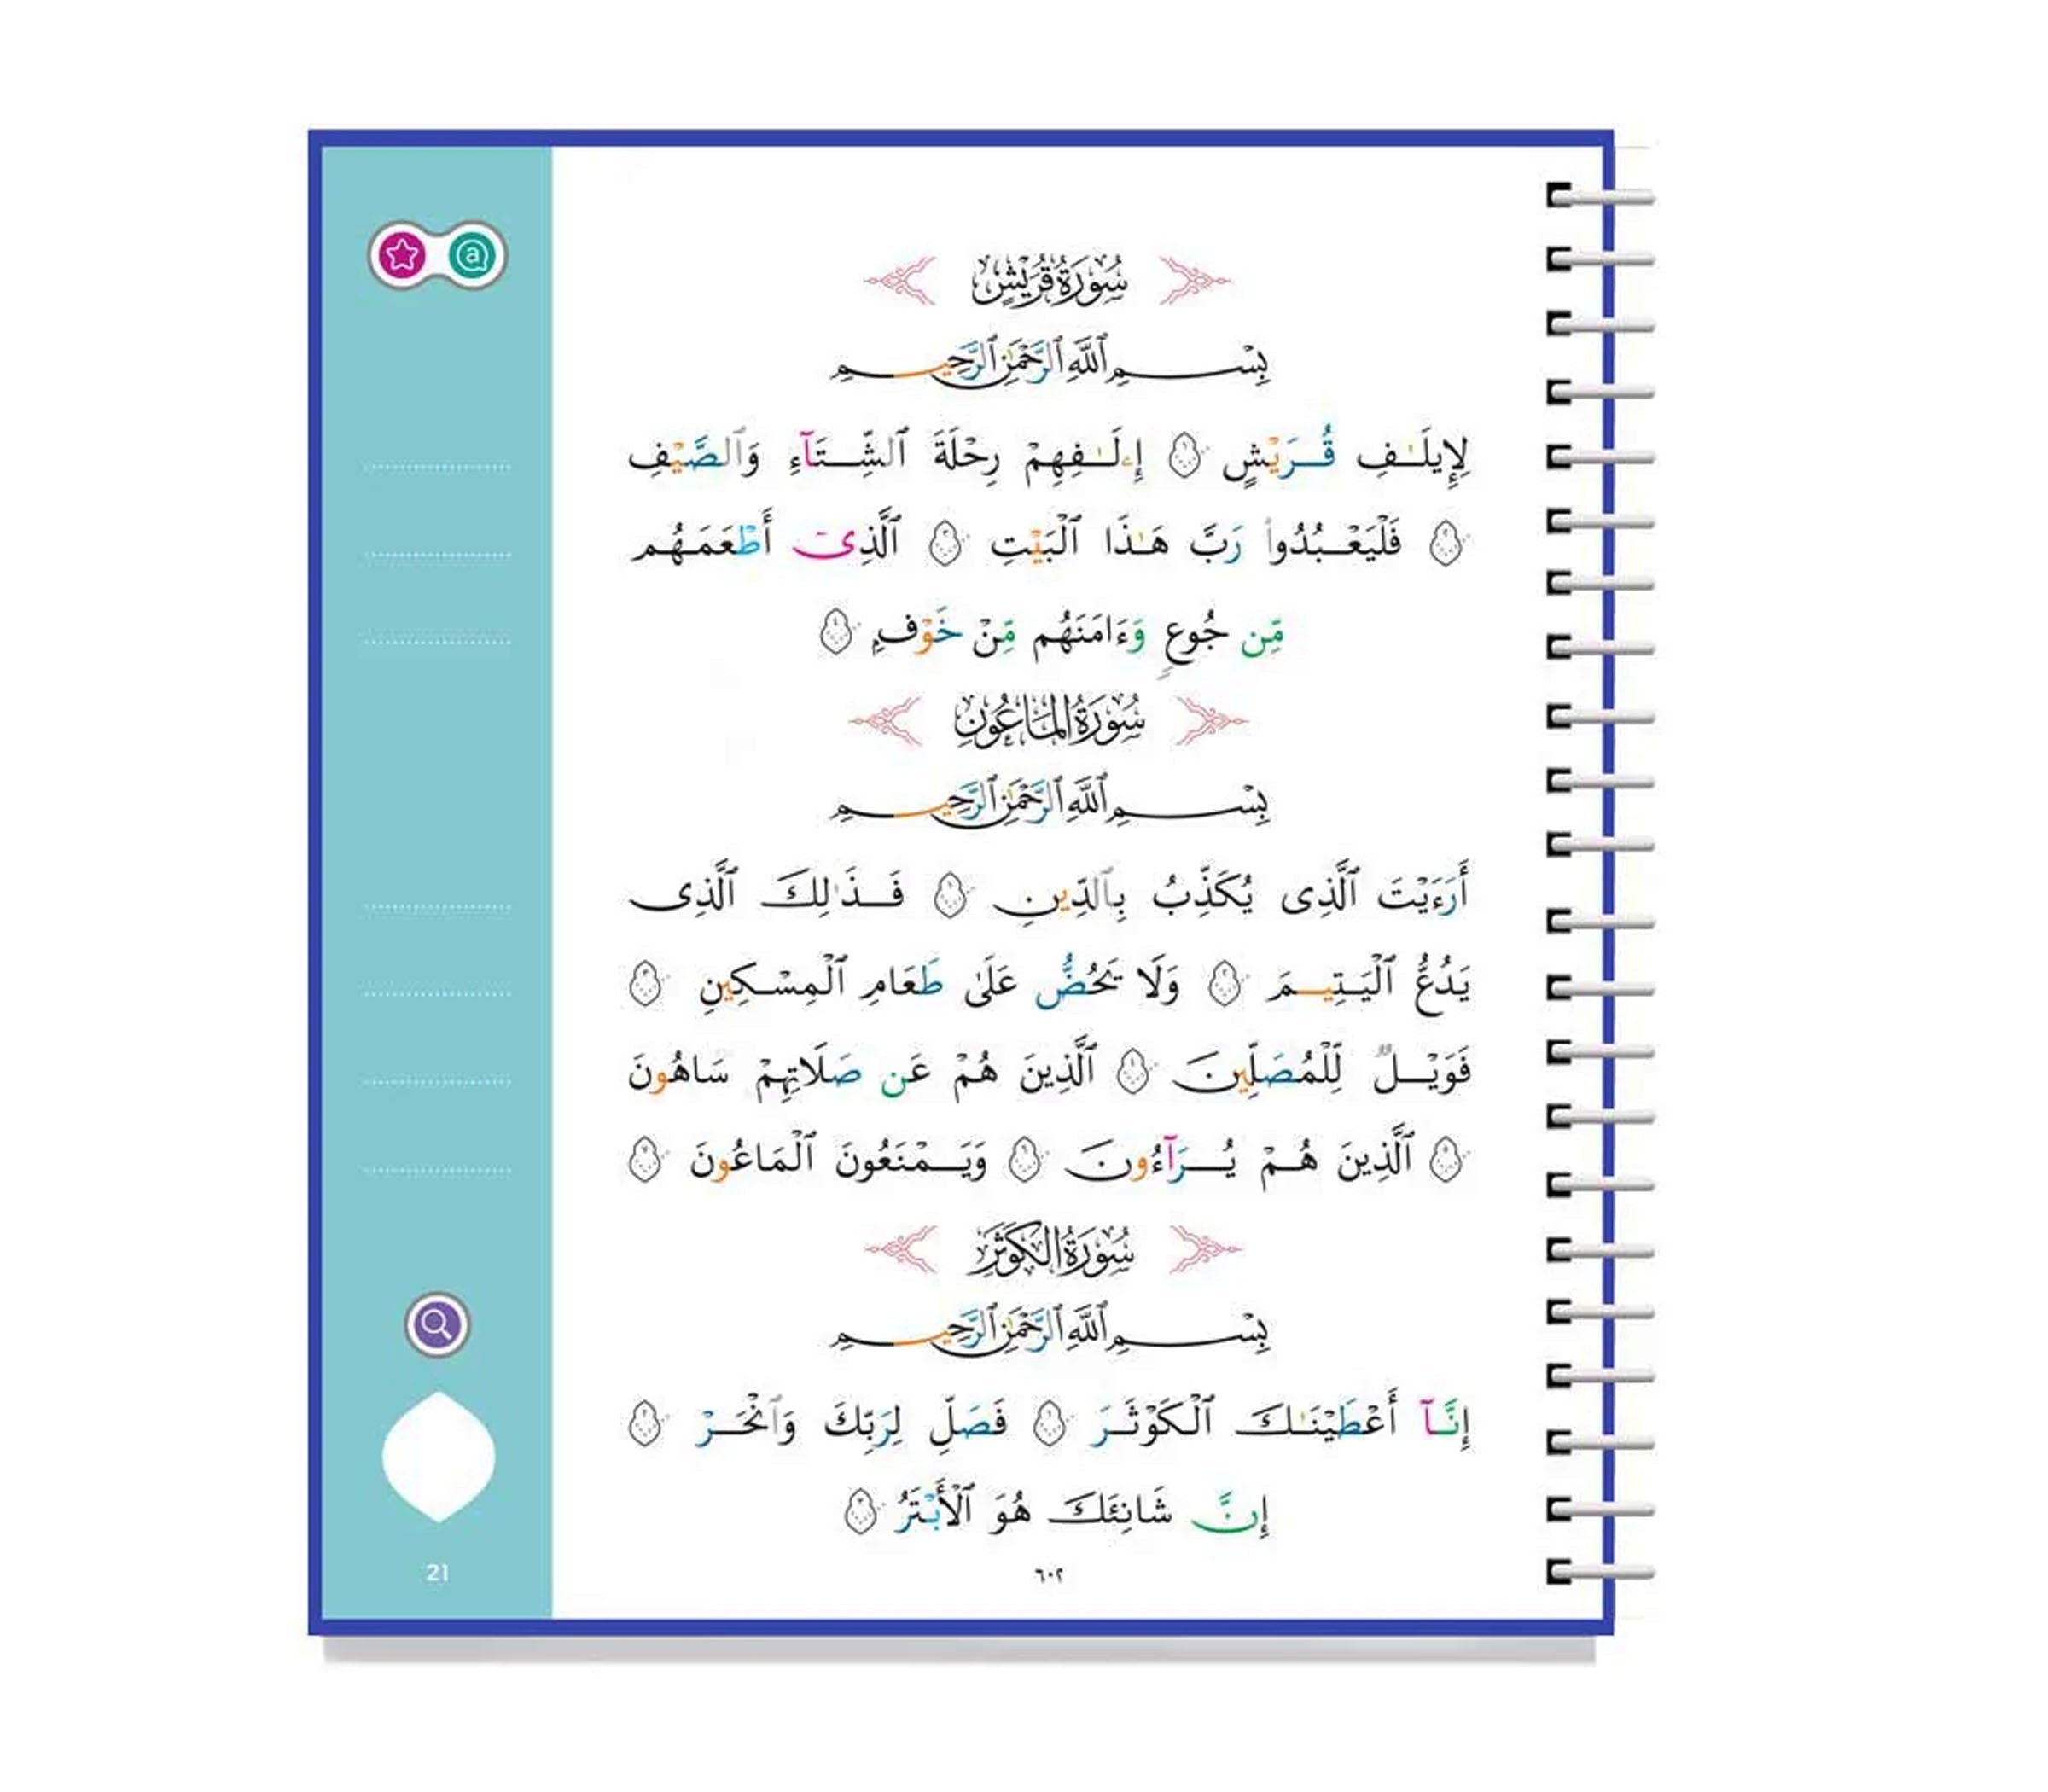 سُورَةُ قُرَيْشٍ
بِسْمِ ٱللَّهِ ٱلرَّحْمَٰنِ ٱلرَّحِيمِ
لِإِيلَٰفِ قُرَيْشٍ ١ إِۦلَٰفِهِمْ رِحْلَةَ ٱلشِّتَآءِ وَٱلصَّيْفِ
٢ فَلْيَعْبُدُوا۟ رَبَّ هَٰذَا ٱلْبَيْتِ ٣ ٱلَّذِىٓ أَطْعَمَهُم
مِّن جُوعٍ وَءَامَنَهُم مِّنْ خَوْفٍۭ ٤
سُورَةُ المَاعُونِ
بِسْمِ ٱللَّهِ ٱلرَّحْمَٰنِ ٱلرَّحِيمِ
أَرَءَيْتَ ٱلَّذِى يُكَذِّبُ بِٱلدِّينِ ١ فَذَٰلِكَ ٱلَّذِى
يَدُعُّ ٱلْيَتِيمَ ٢ وَلَا يَحُضُّ عَلَىٰ طَعَامِ ٱلْمِسْكِينِ ٣
فَوَيْلٌ لِّلْمُصَلِّينَ ٤ ٱلَّذِينَ هُمْ عَن صَلَاتِهِمْ سَاهُونَ
٥ ٱلَّذِينَ هُمْ يُرَآءُونَ ٦ وَيَمْنَعُونَ ٱلْمَاعُونَ ٧
سُورَةُ الكَوْثَرِ
بِسْمِ ٱللَّهِ ٱلرَّحْمَٰنِ ٱلرَّحِيمِ
إِنَّآ أَعْطَيْنَٰكَ ٱلْكَوْثَرَ ١ فَصَلِّ لِرَبِّكَ وَٱنْحَرْ ٢
إِنَّ شَانِئَكَ هُوَ ٱلْأَبْتَرُ ٣
٦٠٢
a
21